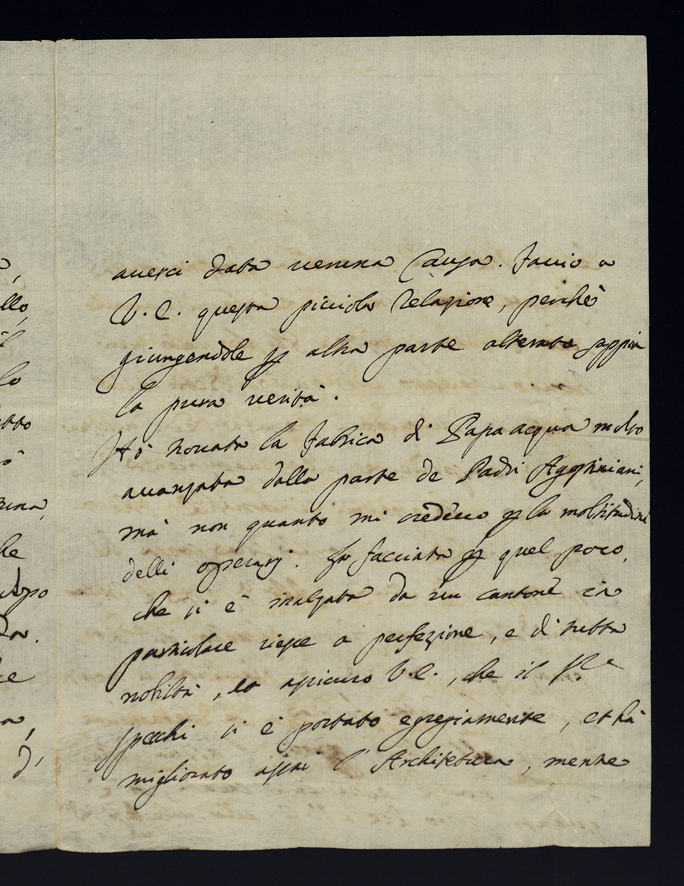 o,
llo,
il
lo
tto
ò
che
ce
averci data veruna Causa. Tanto a
V. E. questa picciola relazione, perchè
giungendole p altra parte alterata sappia
la pura verità.
Hò trovata la fabrica di Papa acqua molto
avanzata dalla parte de Padri Agostiniani,
mà non quanto mi credevo p la moltitudine
delli operarj. La facciata p quel poco,
che si è inalzata da un cantone in
particolare riesce a perfezione, e di tutta
nobiltà, et assicuro V. E., che il Sre
Specchi si è portato egregiamente, et hà
migliorato assai l'Architettura, mentre